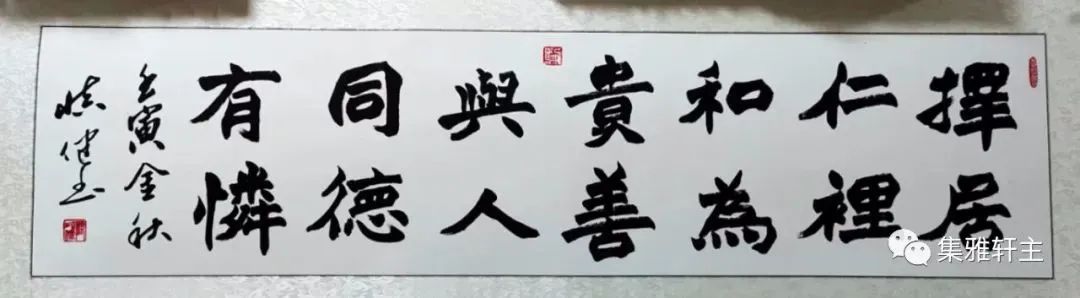 擇居
仁裡
和為
貴善
與人
同德
有憐
壬寅金秋
集雅轩主